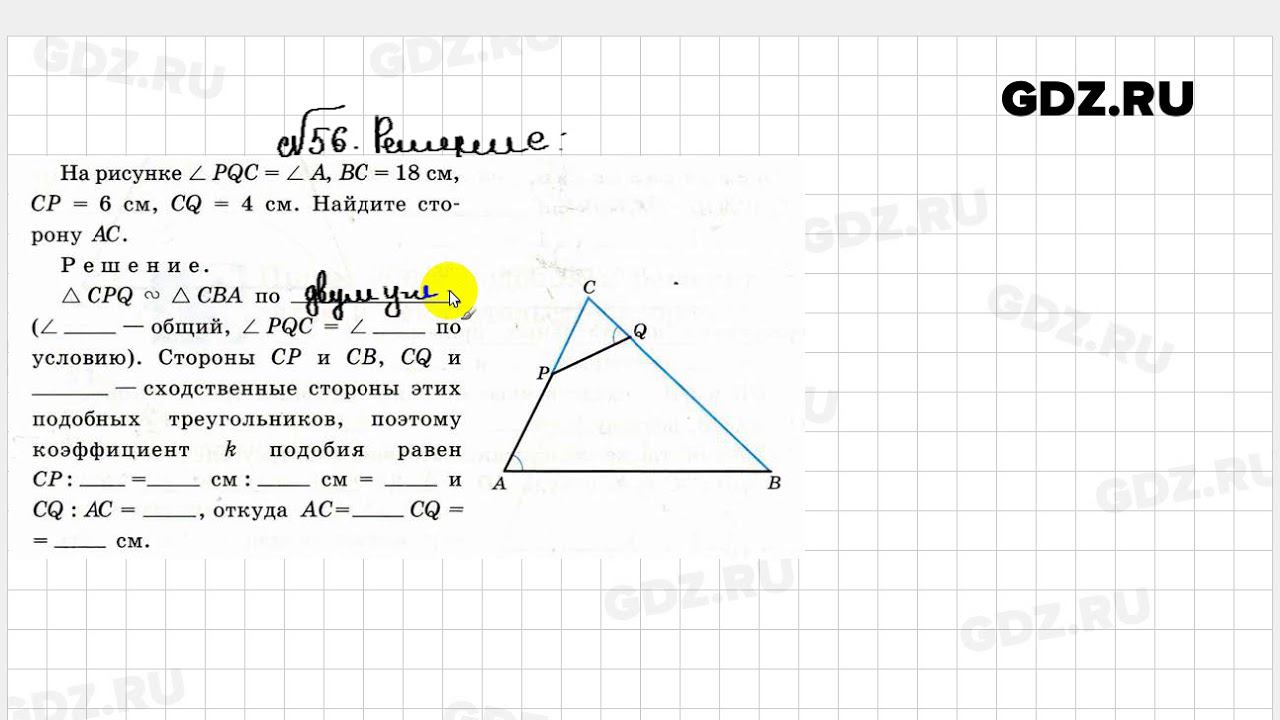 GDZ.RU
GDZ.RU
GDZ.RU
№56. Решение:
На рисунке ∠ PQC = ∠ A, BC = 18 см,
CP = 6 см, CQ = 4 см. Найдите сто-
рону AC.
Решение.
△ CPQ ∾ △ CBA по двум угл
(∠ _____ — общий, ∠ PQC = ∠ _____ по
условию). Стороны CP и CB, CQ и
_______ — сходственные стороны этих
подобных треугольников, поэтому
коэффициент k подобия равен
CP : ____ = _____ см : _____ см = _____ и
CQ : AC = _____, откуда AC= _____ CQ =
= _____ см.
C
Q
P
A
B
GDZ.RU
GDZ.RU
GDZ.RU
GDZ.RU
GDZ.RU
GDZ.RU
GDZ.RU
GDZ.RU